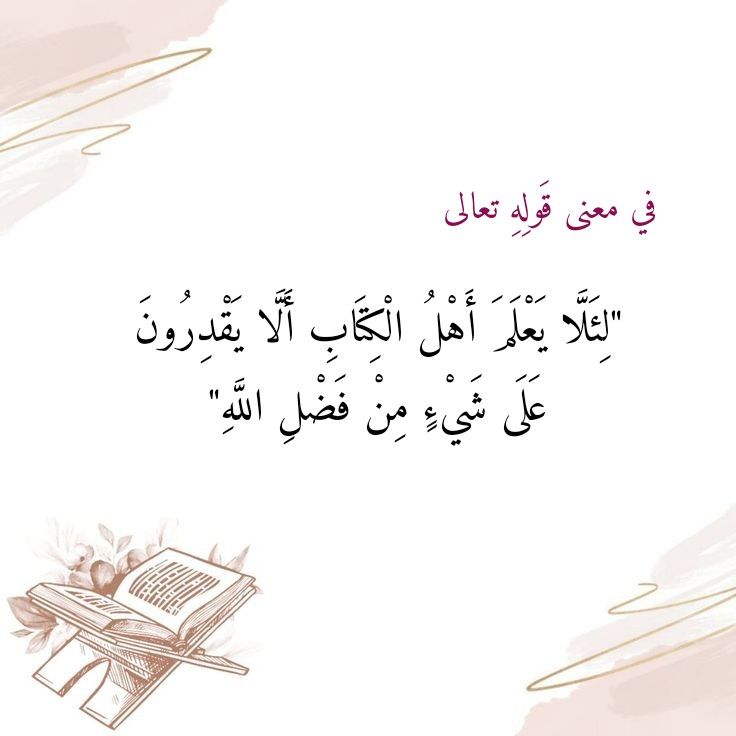 في معنى قَولِهِ تعالى
"لِئَلَّا يَعْلَمَ أَهْلُ الْكِتَابِ أَلَّا يَقْدِرُونَ
عَلَى شَيْءٍ مِنْ فَضْلِ اللَّهِ"